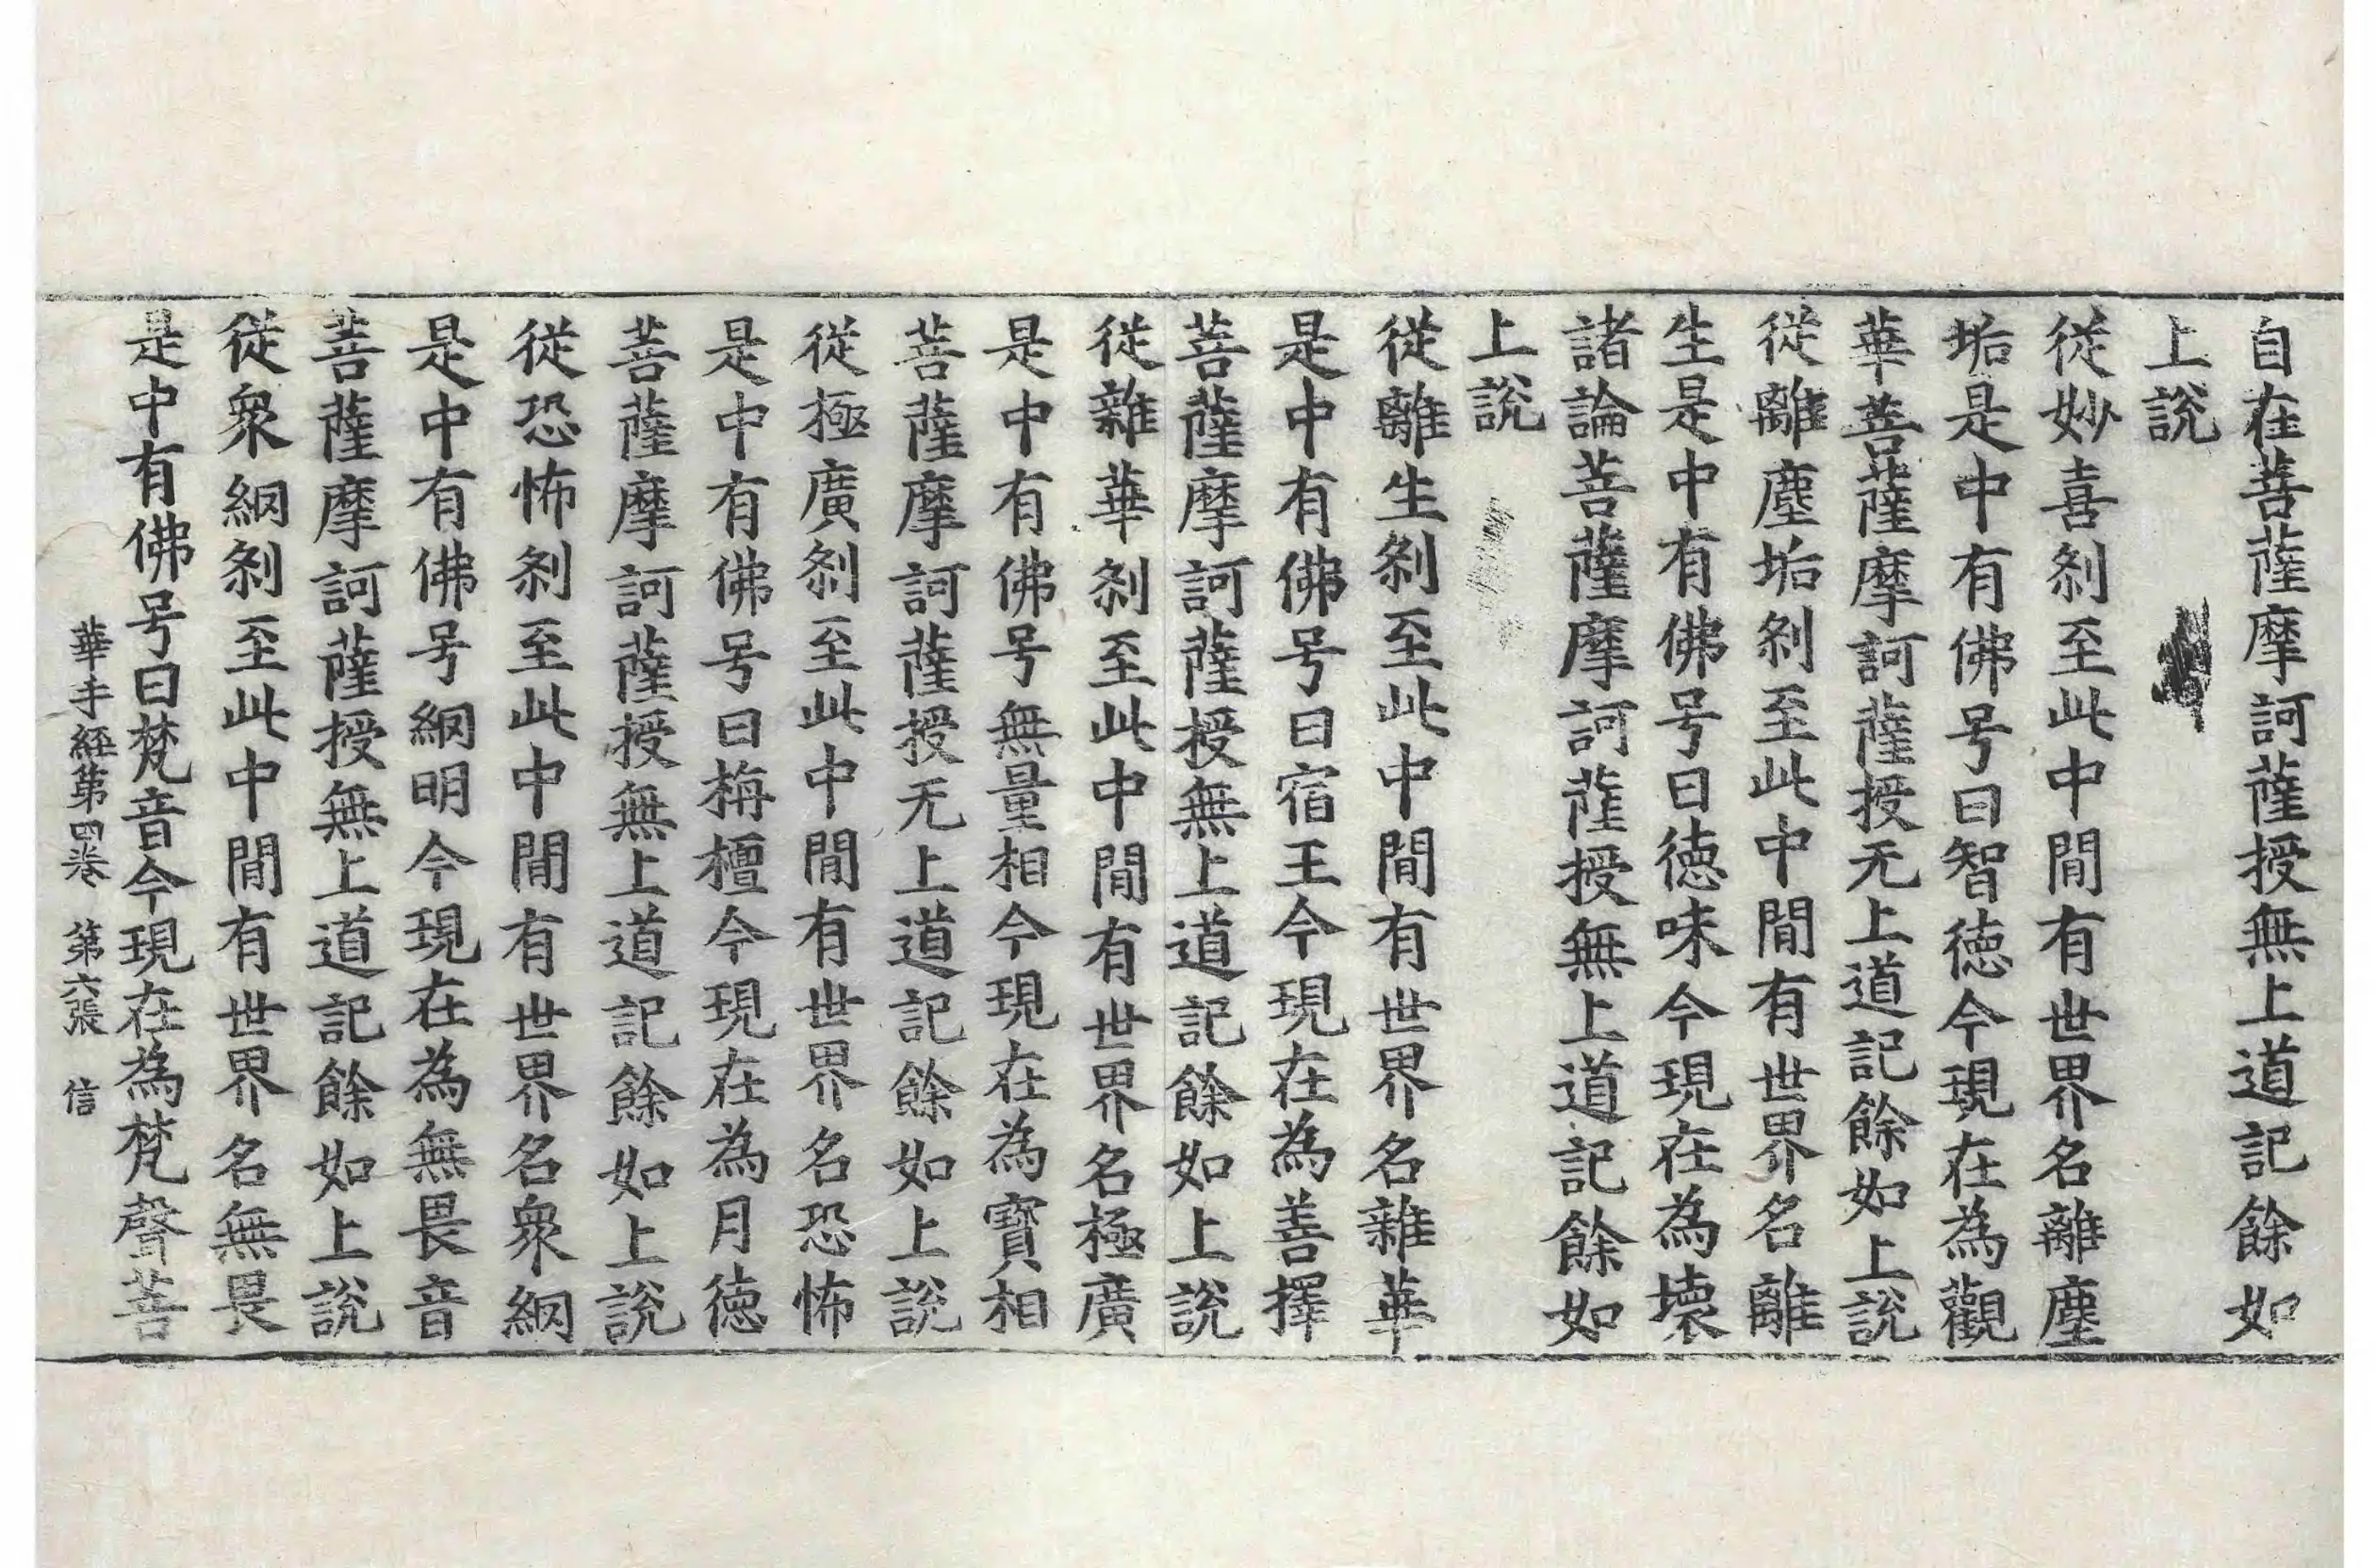 自在菩薩摩訶薩授無上道記餘如
上説
從妙喜剎至此中間有世界名離塵
垢是中有佛号曰智徳今現在為觀
華菩薩摩訶薩授无上道記餘如上説
從離塵垢剎至此中間有世界名離
生是中有佛号曰徳味今現在為壞
諸論菩薩摩訶薩授無上道記餘如
上説
從離生剎至此中間有世界名雜華
是中有佛号曰宿王今現在為善擇
菩薩摩訶薩授無上道記餘如上説
從雜華剎至此中間有世界名極廣
是中有佛号無量相今現在為寶相
菩薩摩訶薩授无上道記餘如上説
從極廣剎至此中間有世界名恐怖
是中有佛号曰栴檀今現在為月徳
菩薩摩訶薩授無上道記餘如上説
從恐怖剎至此中間有世界名衆網
是中有佛号網明今現在為無畏音
菩薩摩訶薩授無上道記餘如上説
從衆網剎至此中間有世界名無畏
是中有佛号曰梵音今現在為梵聲菩
華手経第四卷　第六張　信